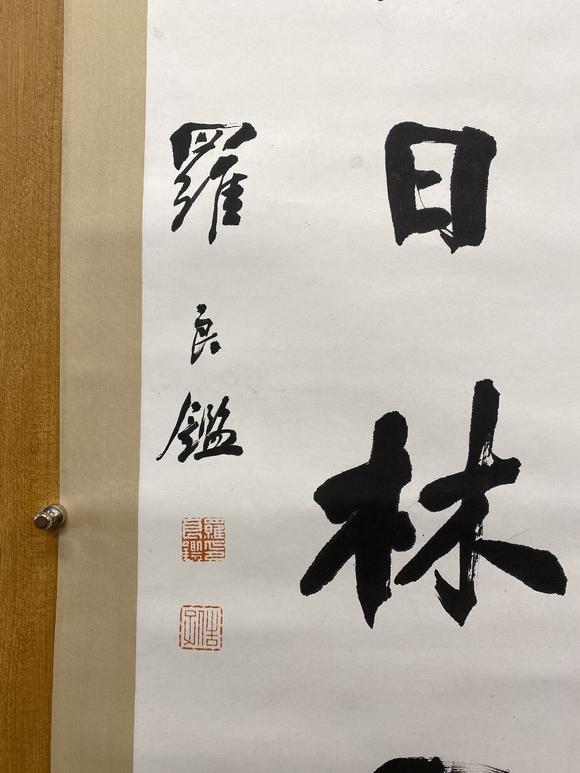 日林
羅良鑑